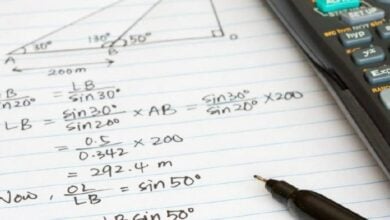 30° 130° 50°
A B O
200m
AB/sin20° = LB/sin30°
LB = sin30°/sin20° × AB = sin30°/sin20° × 200
= 0.5/0.342 × 200
= 292.4 m
Now, OL/LB = sin50°
LB sin50°
hyp